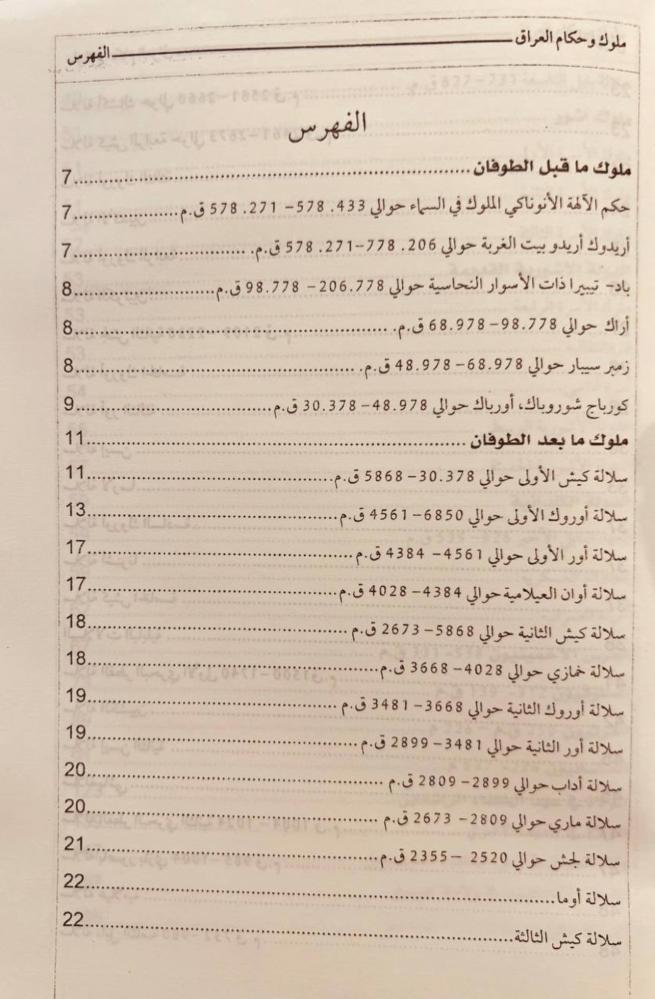 ملوك وحكام العراق ـــــــــــ الفهرس
الفهرس
ملوك ما قبل الطوفان..........7
حكم الآلهة الأنوناكي الملوك في السماء حوالي 433. 578- 271. 578 ق.م..........7
أريدوك أريدو بيت الغربة حوالي 206. 778-271. 578 ق.م...........7
باد- تيبيرا ذات الأسوار النحاسية حوالي 206.778- 98.778 ق.م..........8
أراك حوالي 98.778- 68.978 ق.م...........8
زمبر سيبار حوالي 68.978- 48.978 ق.م...........8
كورباج شوروباك، أورباك حوالي 48.978- 30.378 ق.م..........9
ملوك ما بعد الطوفان..........11
سلالة كيش الأولى حوالي 30.378- 5868 ق.م..........11
سلالة أوروك الأولى حوالي 6850- 4561 ق.م..........13
سلالة أور الأولى حوالي 4561- 4384 ق.م..........17
سلالة أوان العيلامية حوالي 4384- 4028 ق.م..........17
سلالة كيش الثانية حوالي 5868- 2673 ق.م..........18
سلالة خمازي حوالي 4028- 3668 ق.م..........18
سلالة أوروك الثانية حوالي 3668- 3481 ق.م..........19
سلالة أور الثانية حوالي 3481- 2899 ق.م..........19
سلالة أداب حوالي 2899- 2809 ق.م..........20
سلالة ماري حوالي 2809- 2673 ق.م..........20
سلالة لجش حوالي 2520 -2355 ق.م..........21
سلالة أوما..........22
سلالة كيش الثالثة..........22